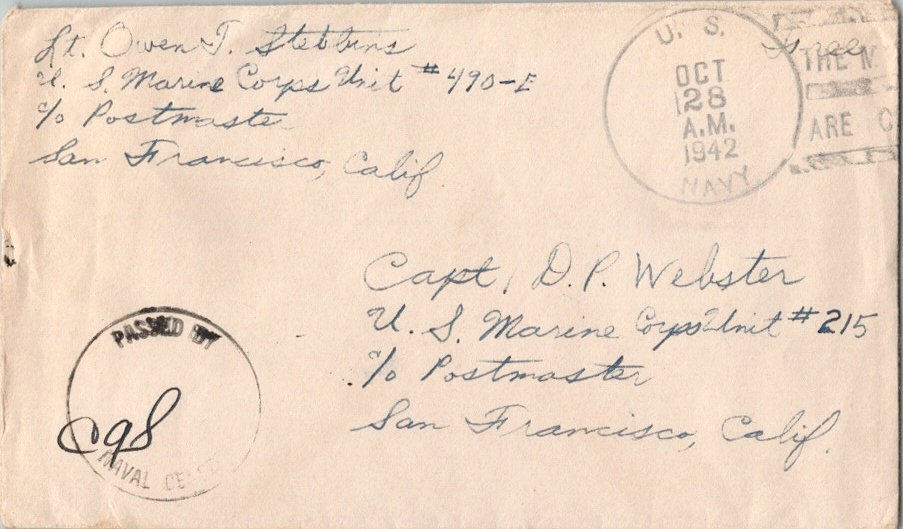 Lt. Owen T. Stebbins
U. S. Marine Corps Unit #490-E
c/o Postmaster
San Francisco, Calif.
U. S.
OCT
28
A.M.
1942
NAVY
Free
THE M
ARE C
Capt. D. P. Webster
U. S. Marine Corps Unit #215
c/o Postmaster
San Francisco, Calif.
PASSED BY
NAVAL CE